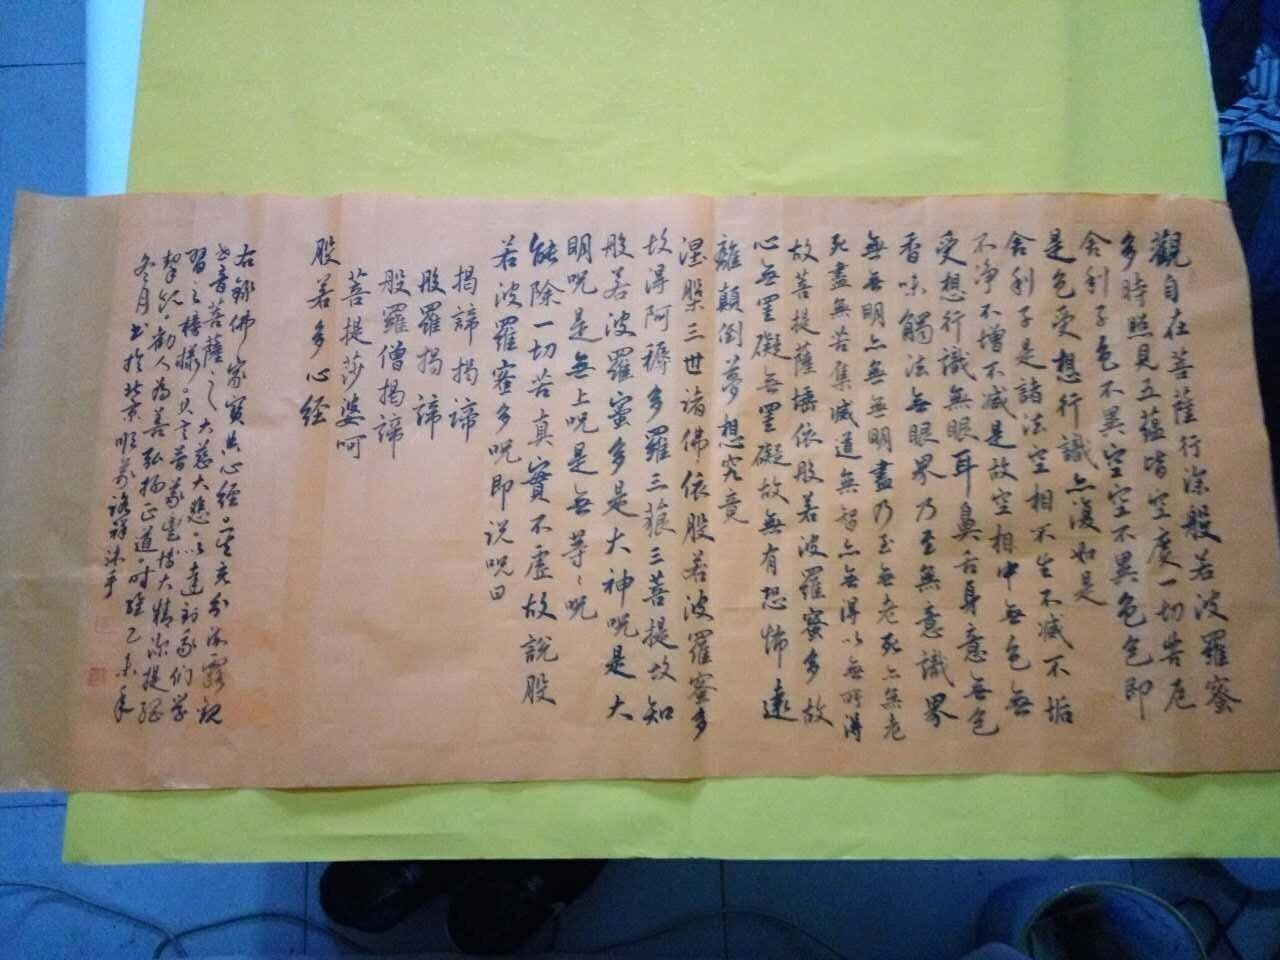 觀自在菩薩行深般若波羅蜜
多時照見五蘊皆空度一切苦厄
舍利子色不異空空不異色色即
是色受想行識亦復如是
舍利子是諸法空相不生不滅不垢
不净不增不减是故空相中無色無
受想行識無眼耳鼻舌身意無色
香味觸法無眼界乃至無意識界
無無明亦無無明盡乃至無老死亦無老
死盡無苦集滅道無智亦無得以無所得
故菩提薩埵依般若波羅蜜多故
心無罣礙無罣礙故無有恐怖遠
離顛倒夢想究竟
涅槃三世诸佛依般若波羅蜜多
故得阿耨多羅三藐三菩提故知
般若波羅蜜多是大神呪是大
明呪是無上呪是無等々呪
能除一切苦真實不虛故説般
若波羅蜜多呪即说呪曰
揭諦揭諦
般羅揭諦
般羅僧揭諦
菩提莎婆呵
般若多心経
右錄佛家寳典心經
音菩薩之大慈大悲以達到我们学
習之榜樣
勸人為善弘揚正道時維乙未年
冬月書於北京順義